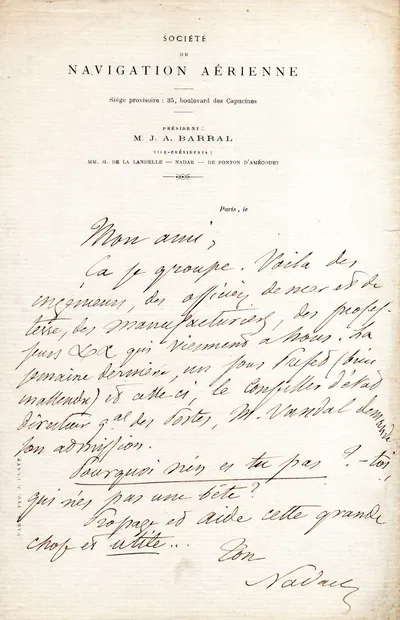 SOCIÉTÉ
DE
NAVIGATION AÉRIENNE
Siège provisoire : 35, boulevard des Capucines
PRÉSIDENT :
M. J. A. BARRAL
VICE-PRÉSIDENTS :
MM. G. DE LA LANDELLE — NADAR — DE PONTON D'AMÉCOURT
Paris, le
Mon ami,
Ça se groupe. Voilà des
ingénieurs, des officiers de mer et de
terre, des manufacturiers, des profes-
seurs &&& qui viennent à nous. La
semaine dernière, un sous Préfet (
inattendu) et celle ci, le Conseiller d'état
directeur gal des Postes, M. Vandal demande
son admission.
Pourquoi n'en es tu pas ? - toi,
qui n'es pas une bête ?
Propage et aide cette grande
chose et utile...
Ton
Nadar